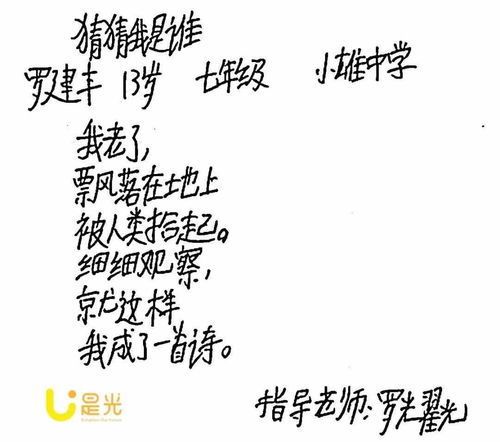 猜猜我是谁
罗建丰 13岁 七年级 小雄中学
我老了,
飘落在地上
被人类拾起。
细细观察,
就这样
我成了一首诗。
是光
指导老师:罗光翟光